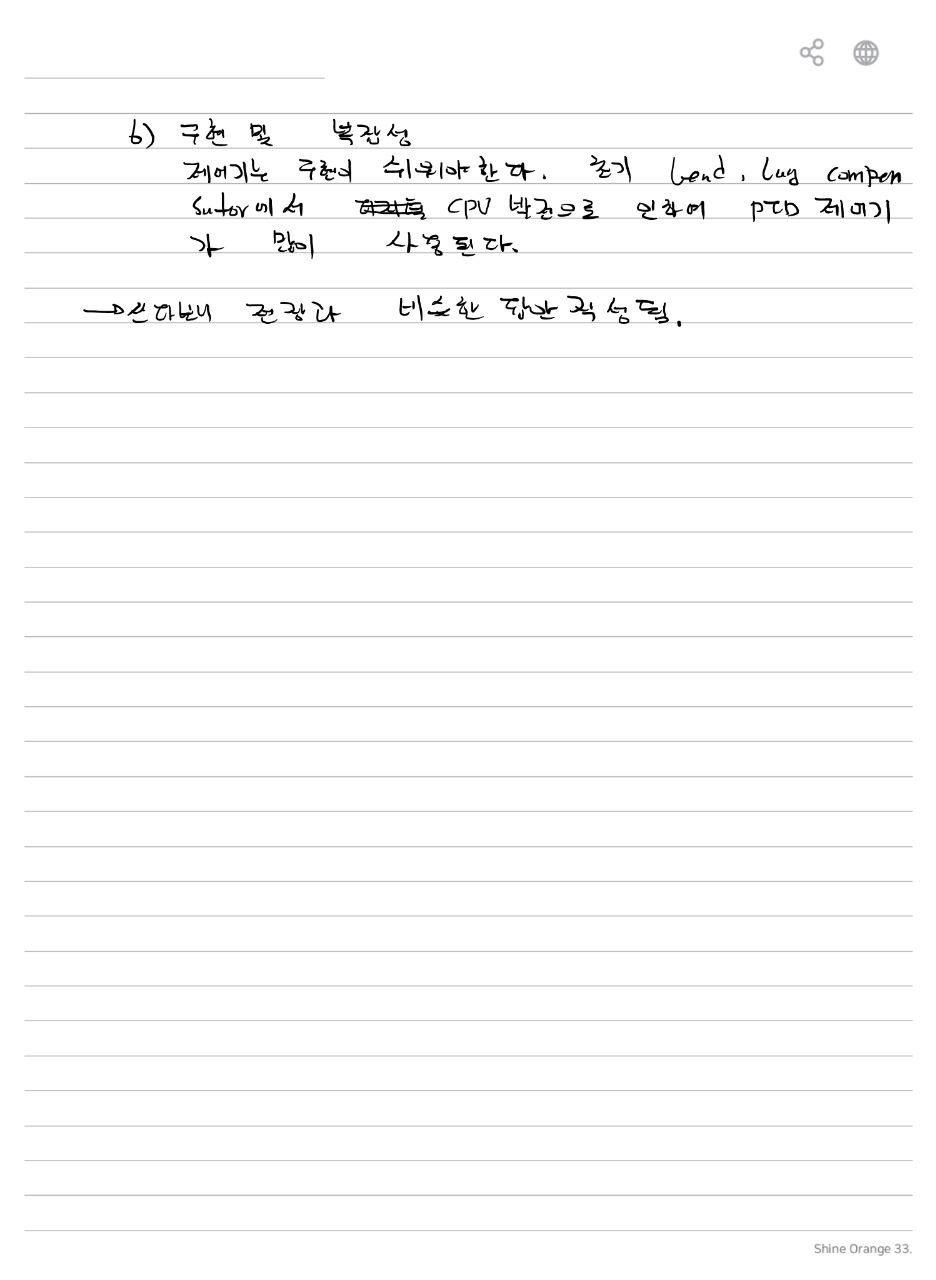 6) 구현 및 복잡성
제어기는 구현이 쉬워야한다. 초기 Lead, Lag compen
sator에서 CPU 발전으로 인하여 PID 제어기
가 많이 사용된다.
→ 쓰다보니 전장과 비슷한 답안 작성됨.
Shine Orange 33.